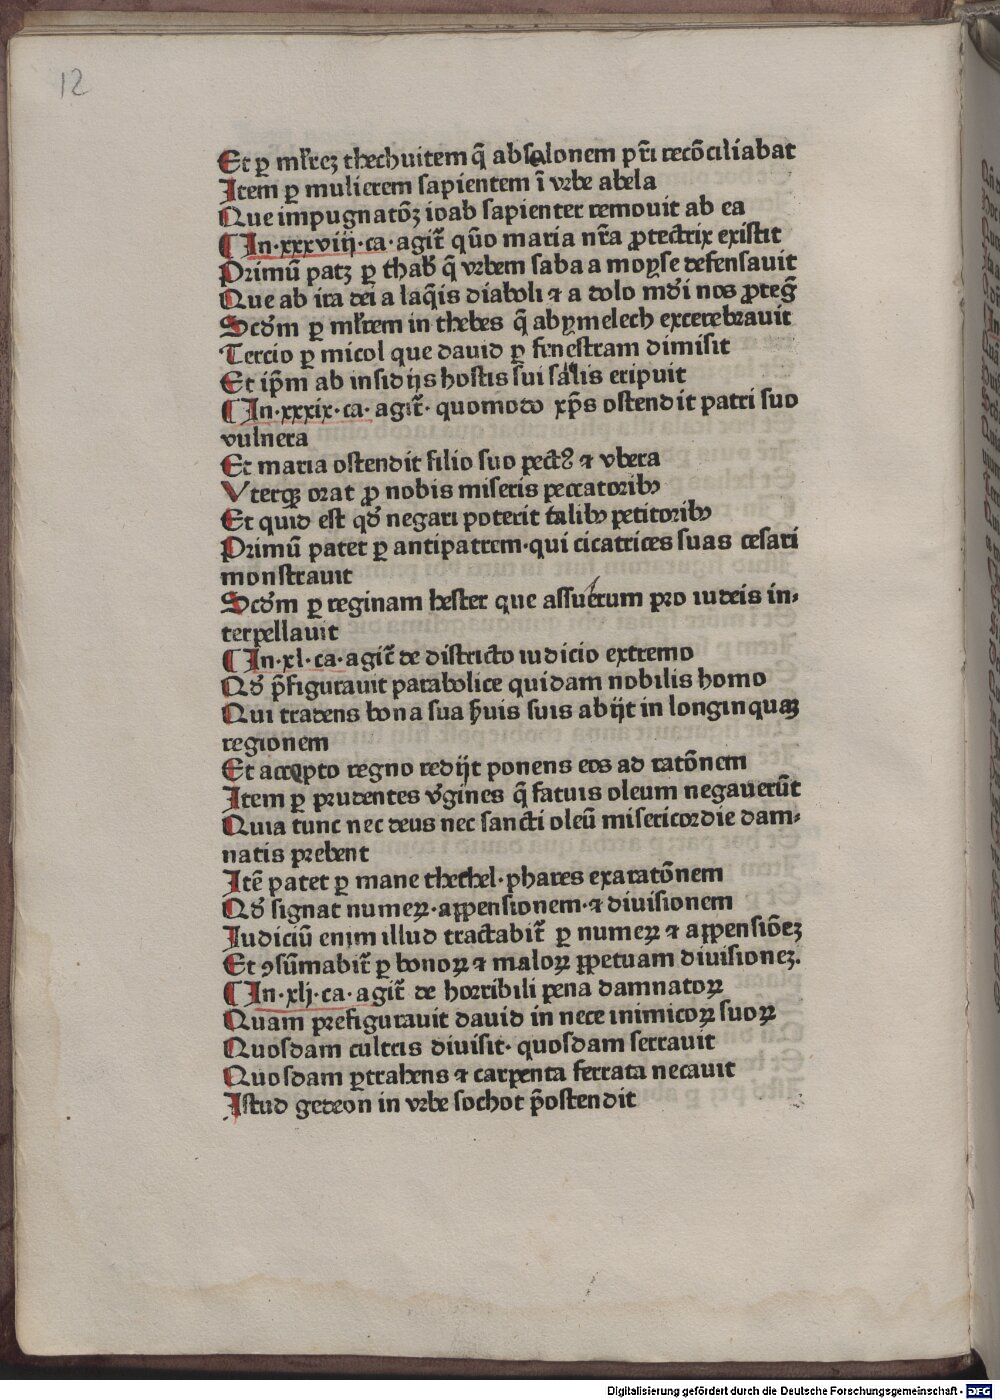 12
Et ꝑ ml'rez thechuitem q̄ absalonem pr̄i recōciliabat
Item ꝑ mulierem sapientem ī vrbe abela
Que impugnatōꝫ ioab sapienter remouit ab ea
¶ In·xxxviij·ca·agit̄ qūo maria nr̄a ꝓtectrix existit
Primū patꝫ ꝑ thab' q̄ vrbem saba a moyse defensauit
Que ab ira dei a laq̄is diaboli ⁊ a dolo mūdi nos ꝓteg̃
Scd̄m ꝑ ml'rem in thebes q̄ abymelech excerebrauit
Tercio ꝑ micol que dauid ꝑ fenestram dimisit
Et ip̄m ab insidijs hostis sui saulis eripuit
¶ In·xxxix·ca·agit̄· quomodo xp̄s ostendit patri suo
vulnera
Et maria ostendit filio suo pectꝰ ⁊ vbera
Vterqꝫ orat ꝓ nobis miseris peccatoribꝰ
Et quid est qd̄ negari poterit talibꝰ petitoribꝰ
Primū patet ꝑ antipatrem·qui cicatrices suas cesari
monstrauit
Scd̄m ꝑ reginam hester que assuerum pro iudeis in-
terpellauit
¶ In·xl·ca·agit̄ de districto iudicio extremo
Qd̄ p̄figurauit parabolice quidam nobilis homo
Qui tradens bona sua ẜuis suis abijt in longinquaꝫ
regionem
Et accepto regno redijt ponens eos ad ratōnem
Item ꝑ prudentes v̓gines q̄ fatuis oleum negauerūt
Quia tunc nec deus nec sancti oleū misericordie dam-
natis prebent
Itē patet ꝑ mane thethel·phares exaratōnem
Qd̄ signat numeꝝ·appensionem·⁊ diuisionem
Iudiciū enim illud tractabit̄ ꝑ numeꝝ ⁊ appensiōeꝫ
Et ꝯsūmabit̄ ꝑ bonoꝝ ⁊ maloꝝ ꝑpetuam diuisioneꝫ.
¶ In·xlj·ca·agit̄ de horribili pena damnatoꝝ
Quam prefigurauit dauid in nece inimicoꝝ suoꝝ
Quosdam cultris diuisit· quosdam serrauit
Quosdam ꝑtrahens ⁊ carpenta ferrata necauit
Istud gedeon in vrbe sochot p̄ostendit
Digitalisierung gefördert durch die Deutsche Forschungsgemeinschaft - DFG